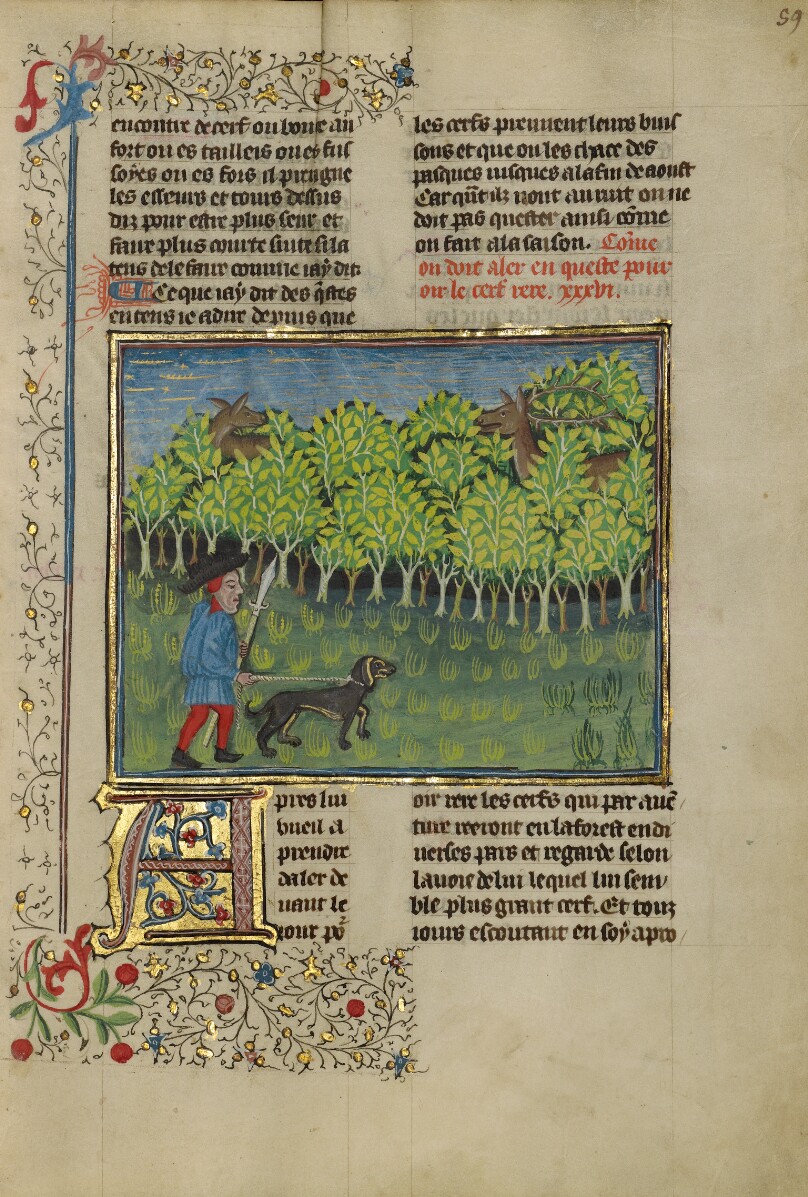 59
encontre de cerf ou bouc au
fort ou es tailleis ou es fus
soyes ou es fors il prengne
les esseurs et tours dessus
diz pour estre plus seur et
faire plus courte suite sil a
tens de le faire comme iay dit
Et ce que iay dit des q̃stes
entens ie a dire depuis que
les cerfs prennent leurs buis
sons et que on les chace des
pasques iusques a la fin de aoust
Car qũt ilz vont au ruit on ne
doit pas quester ainsi cõme
on fait a la saison. Cõme
on doit aler en queste pour
oir le cerf rere. xxxvi.
Apres lui
vueil a
prendre
daler de
uant le
iour po᷑
oir rere les cerfs qui par auẽ
ture reeront en la forest en di
uerses pars et regarde selon
la uoie de lui lequel lui sem
ble plus grant cerf. Et touz
iours escoutant en soy apro